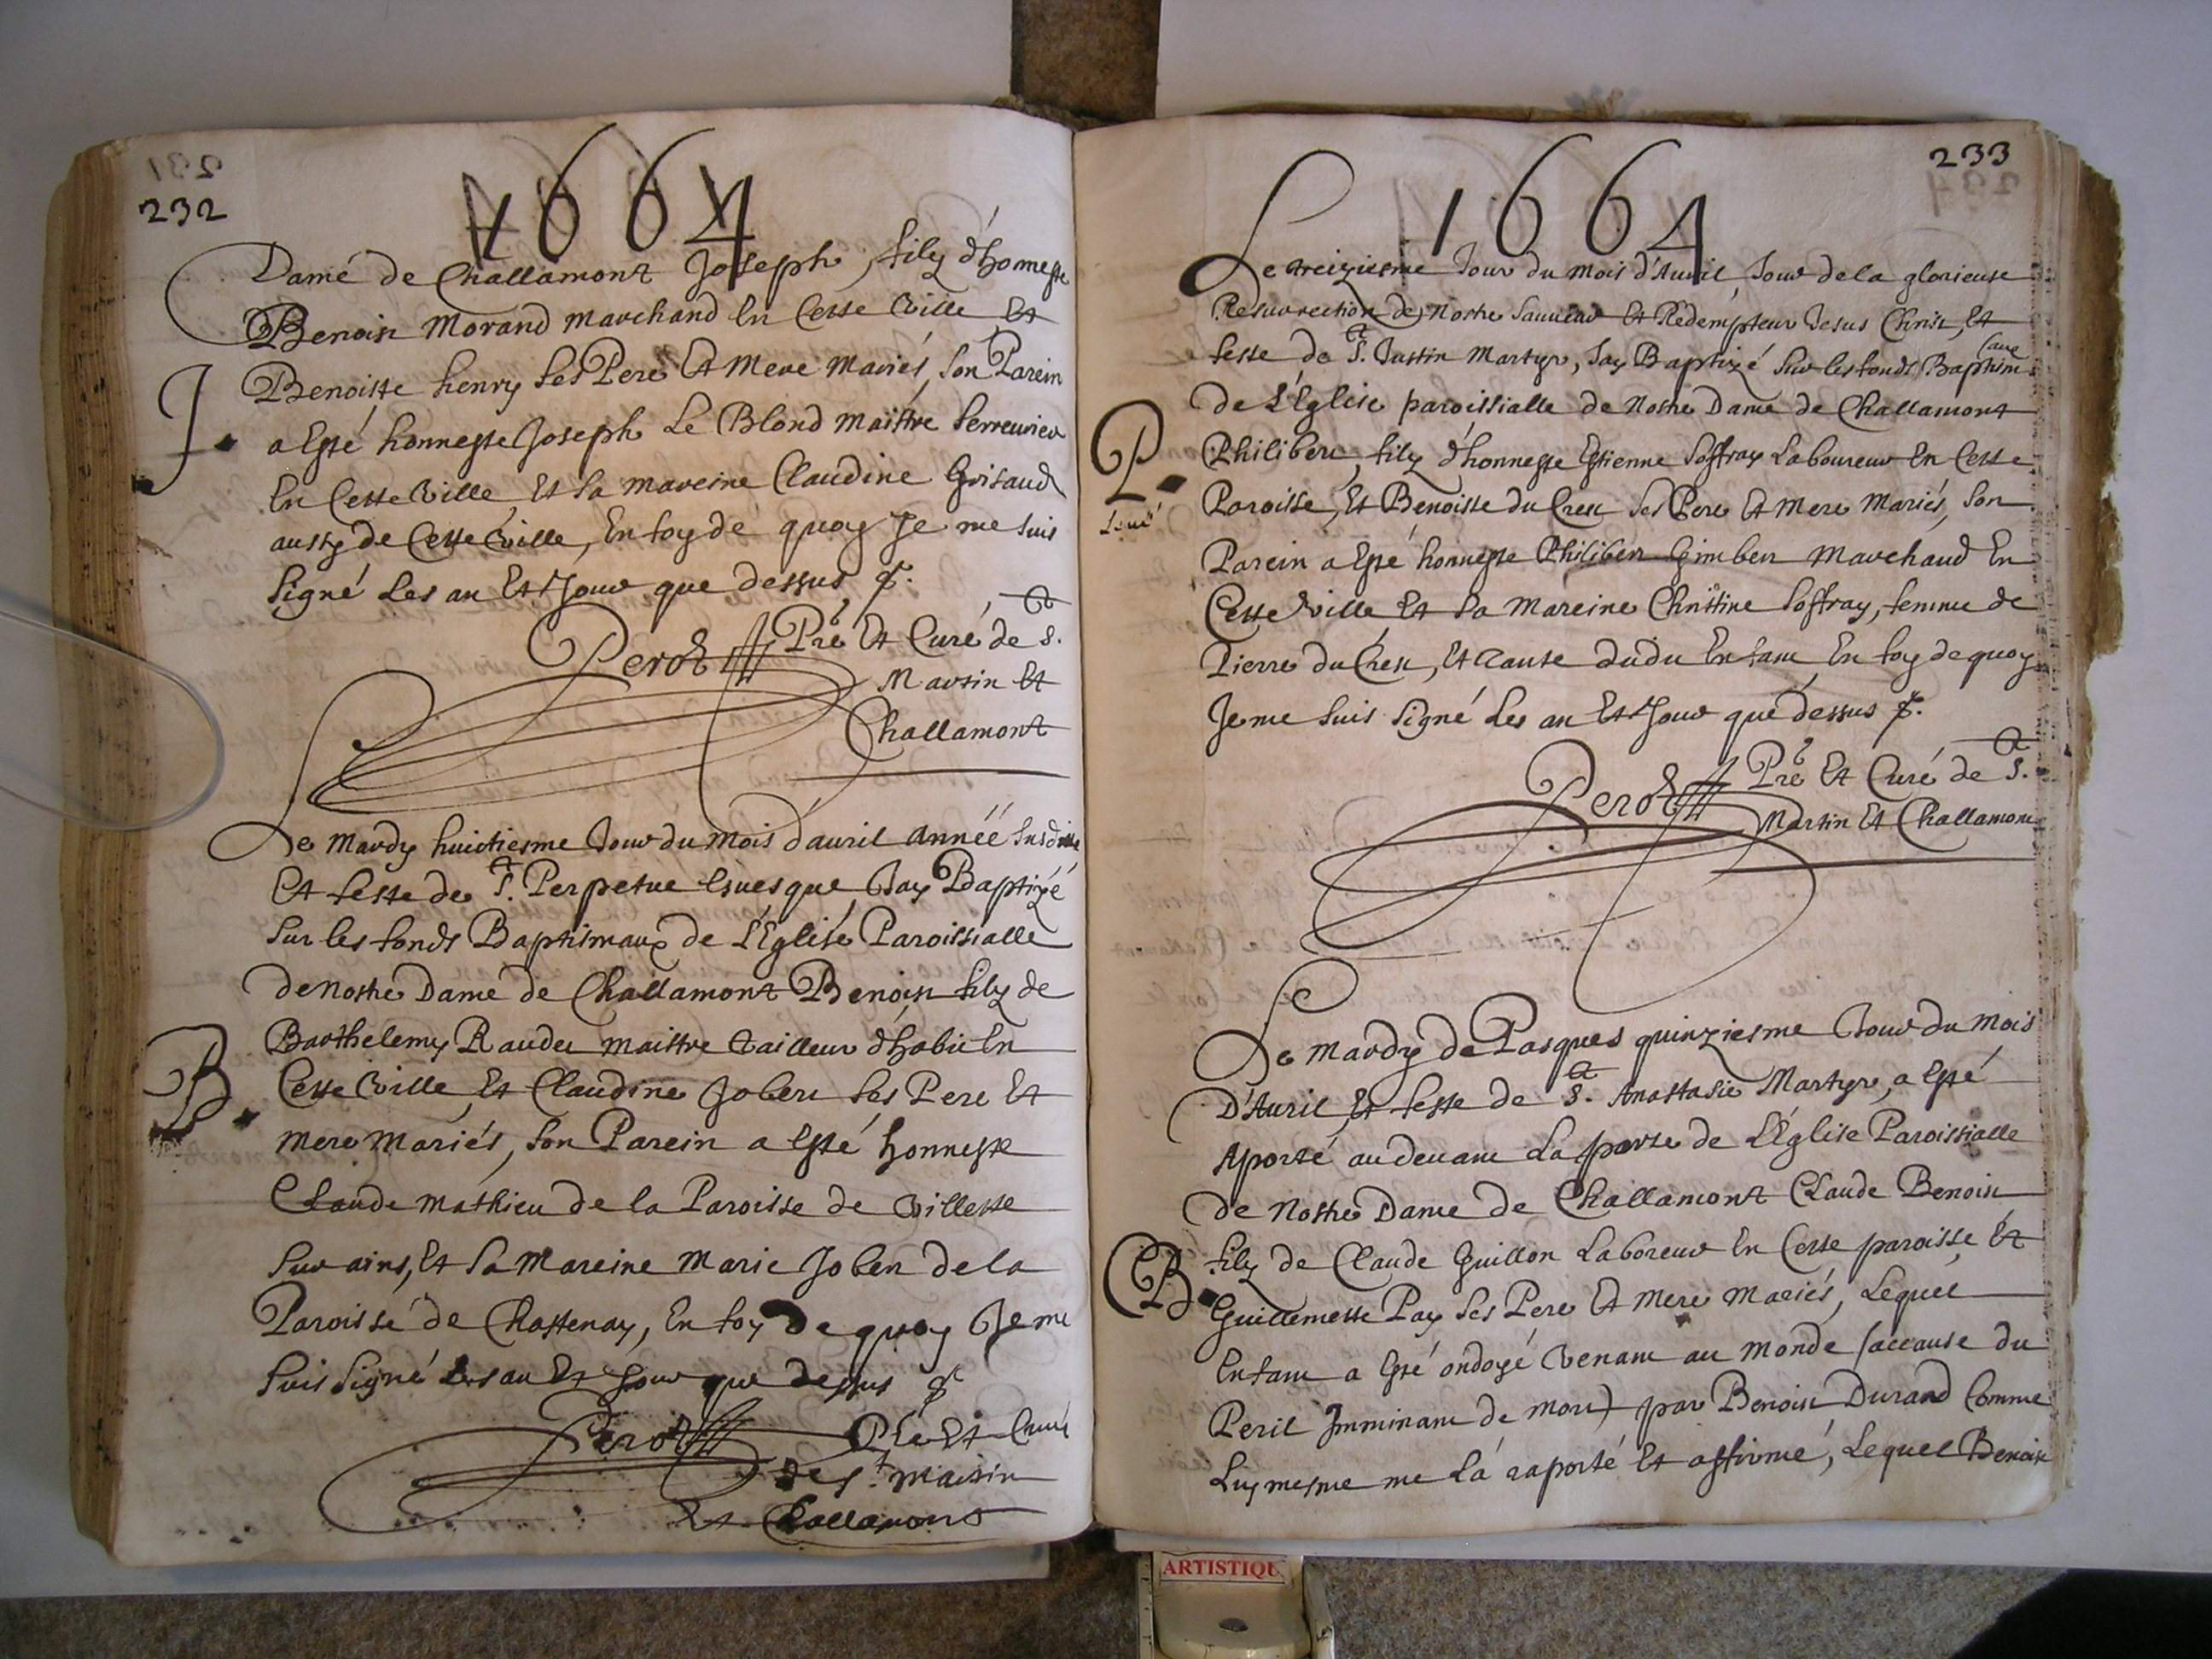 232
1664
Dame de Challamont Joseph, filz d'honneste
Benoist Morand marchand En Cette Ville Et
Benoiste henry Ses Pere Et Mere Mariés, Son Parein
J.
a Esté honneste Joseph Le Blond Maistre Serreurier
En Cette Ville, Et Sa mareine Claudine Grisaud
aussy de Cette Ville, En foy de quoy Je me suis
Signé Les an Et Jour que dessus &.
Perod Pre Et Curé de St.
Martin Et
Challamont
Le Mardy huictiesme Jour du Mois d'auril Année Susditte
Et feste de St. Perpetue Euesque, J'ay Baptizé
Sur les fonds Baptismaux de L'Eglise Paroissialle
de Nostre Dame de Challamont Benoist filz de
Barthelemy Raudet Maistre Tailleur d'habit En
B.
Cette Ville, Et Claudine Jobert Ses Pere Et
Mere Mariés, Son Parein a Esté honneste
Claude Mathieu de la Paroisse de Villette
Sur ains, Et Sa Mareine Marie Jobert de la
Paroisse de Chastenay, En foy de quoy Je me
Suis Signé Les an Et Jour que dessus &
Perod Pre Et Curé
de St. Martin
Et Challamont
233
1664
Le treiziesme Jour du Mois d'Auril, Jour de la glorieuse
Resurrection de Nostre Sauueur Et Redempteur Jesus Christ, Et
feste de St. Justin Martyr, J'ay Baptizé Sur les fonds Baptism
de L'Eglise paroissialle de Nostre Dame de Challamont
P.
Philibert, filz d'honneste Estienne Soffray Laboureur En Cette
Paroisse, Et Benoiste du Creu Ses Pere Et Mere Mariés, Son
Parein a Esté honneste Philibert Gimbert Marchand En
Cette Ville Et Sa Mareine Christine Soffray, femme de
Pierre du Cheu, Et Tante dudit Enfant En foy de quoy
Je me Suis Signé Les an Et Jour que dessus &.
Perod Pre Et Curé de St.
Martin Et Challamont
Le Mardy de Pasques quinziesme Jour du Mois
D'Auril, Et feste de Ste. Anastasie Martyre, a Esté
Aporté au deuant La porte de L'Eglise Paroissialle
de Nostre Dame de Challamont Claude Benoist
B.
filz de Claude Guillon Laboreur En Cette paroisse Et
Guillemette Pay Ses Pere Et Mere Mariés, Lequel
Enfant a Esté ondoyé Venant au Monde (accause du
Peril Imminant de Mort) par Benoist Durand Comme
Luy mesme me L'a raporté Et affirmé, Lequel Benoist
ARTISTIQU